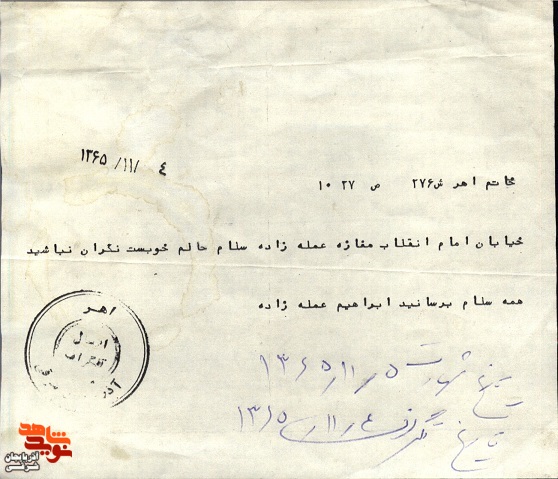 ۱۳۶۵/۱۱/ ٤
مخاتم اهر ش۲۷۶ ص ۲۷ ۱۰
خیابان امام انقلاب مغازه عمله زاده سلام حالم خوبست نگران نباشید
همه سلام برسانید ابراهیم عمله زاده
اهر
تلگراف
تاریخ شهادت ۵ر۱۱ر۱۳۶۵
تاریخ تلگراف ٤ر۱۱ر۱۳۶۵
نوید شاهد
آذربایجان شرقی